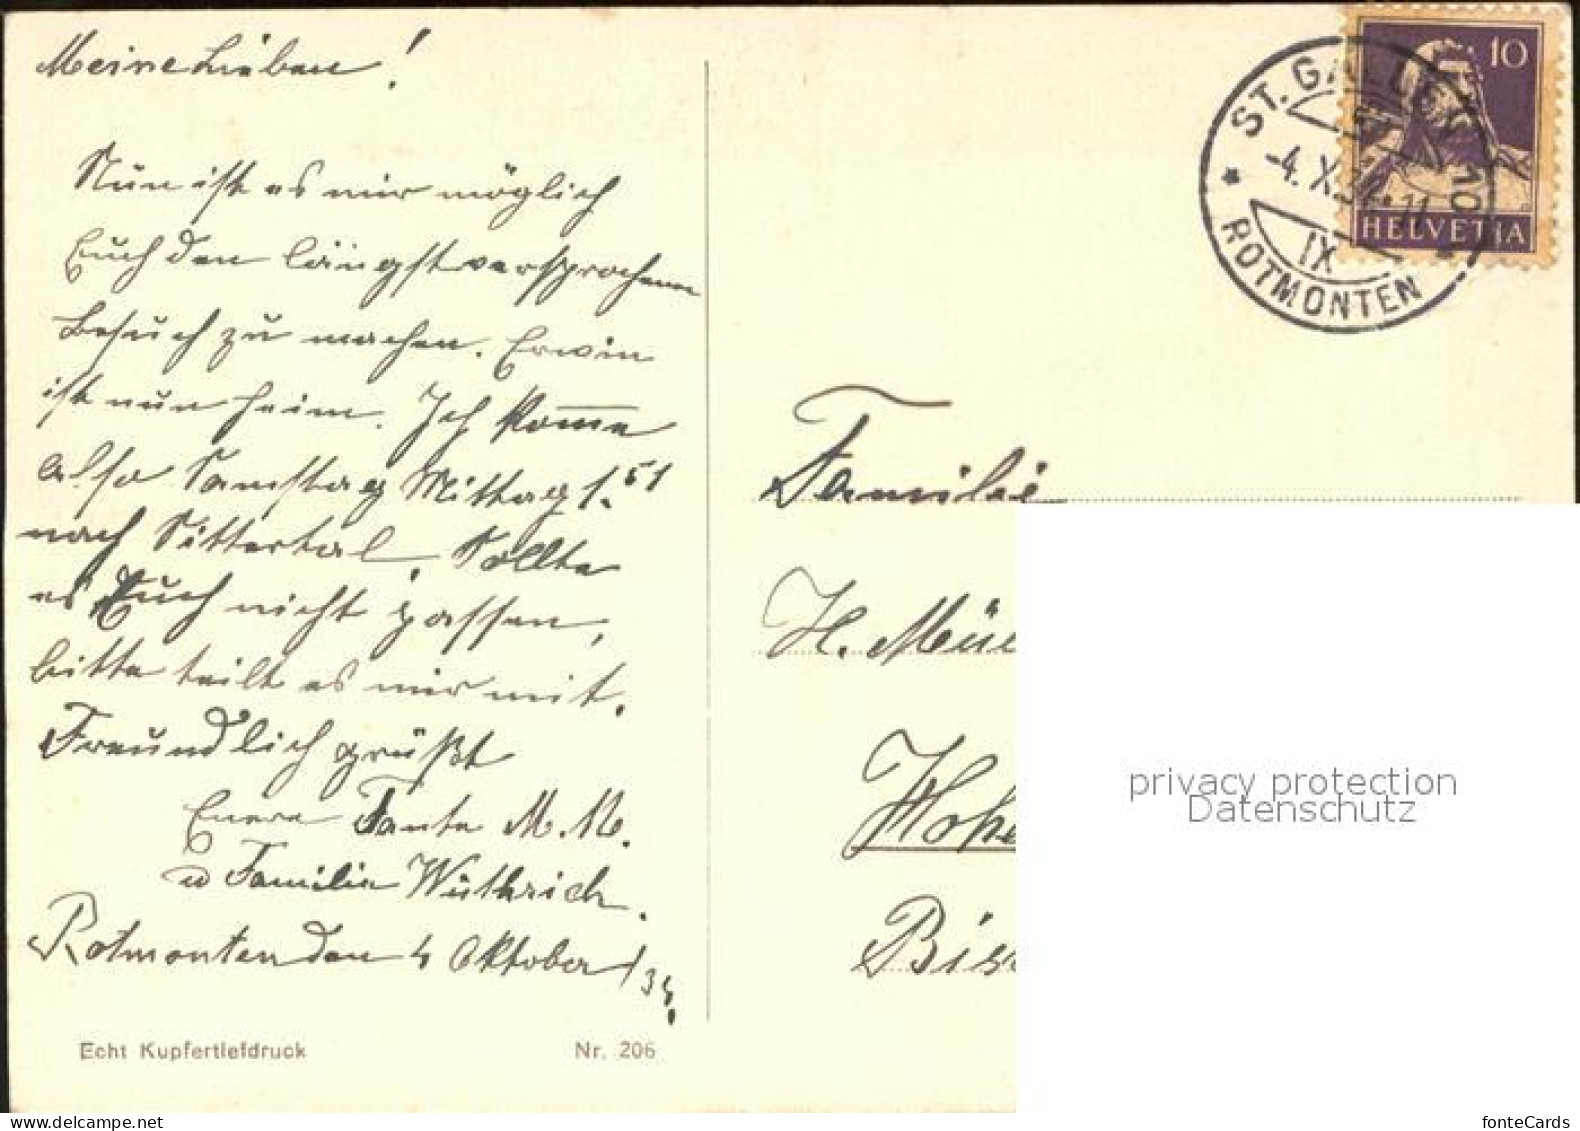 Meine Lieben!
Nun ist es mir möglich
Euch den längst versprochenen
Besuch zu machen. Erwin
ist nun heim. Ich komme
also Samstag Mittag 1.51
nach Sittertal. Sollte
es Euch nicht passen,
bitte teilt es mir mit.
Freundlich grüßt
Euere Tante M. M.
u Familie Wüthrich.
Rotmonten den 4 Oktober /34.
Echt Kupfertiefdruck Nr. 206
10
HELVETIA
ST. GALLEN 10
-4.X.34.11
IX
ROTMONTEN
Familie
H. Mü
Hohe
Bis
privacy protection
Datenschutz
fonteCards
www.delcampe.net